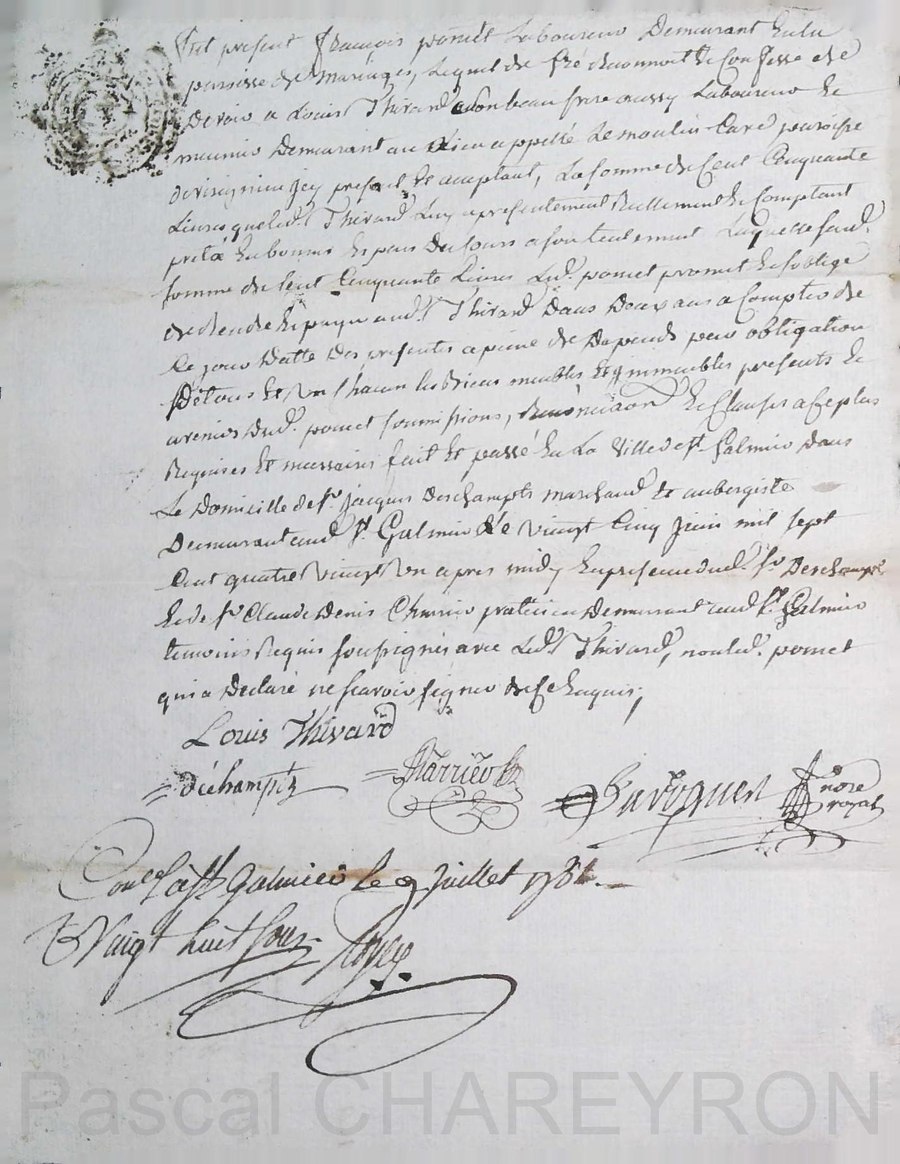 fut présent François pomet Laboureur Demeurant En la
paroisse de Maringes, Lequel de gré Reconnoit Et Confesse de
Devoir a Louis Thivard Son beau frere aussy Laboureur Et
meunier Demeurant au Lieu appellé Le moulin paroisse
de jcy present Et aceptant, La somme de Cent Cinquante
Livres que led.t Thivard Luy a presentement Reellement Et Comptant
preté En bonnes Es peces Du Cours a son Contentement Laquelle susd.e
somme de Cent Cinquante Livres Led. pomet promet Et soblige
de Rendre Et payer aud.t Thivard Dans Deux ans a Compter de
Ce jour Datte Des presentes a peine de Depends pour obligation
De tous Et Un Chacun les Biens meubles Et jmmeubles presents Et
avenir Dud. pomet soumissions, Renonciaon Et Clauses a Ce plus
Requises Et necessaires fait Et passé En La Ville de St. Galmier dans
Le Domicille de Sr. Jacques Deschampts marchand Et aubergiste
Demeurant aud. St Galmier Le vingt Cinq juin mil sept
Cent quatre vingt Un apres midy En presence dud. Sr. Deschampts
Et de Sr. Claude Denis praticien Demeurant aud. St. Galmier
temoins Requis soussignes avec Led.t Thivard, non led. pomet
qui a Declaré ne scavoir signer de ce Enquis;
Louis Thivard
déchampts
nore
royal
Con.lé a St Galmier le 9 juillet 1781.
R Vingt huit sous
Pascal CHAREYRON